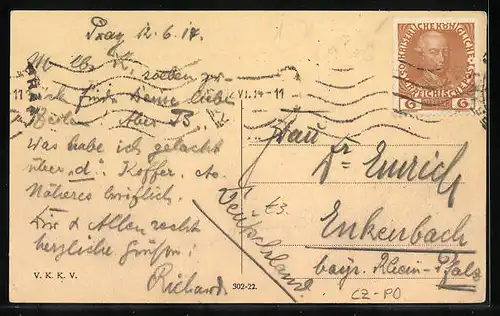 Prag 12.6.14.
M. lb. K, soeben zu-
rück finde Deine lieben
Zeilen
Was habe ich gelacht
über "d." Koffer.
Näheres brieflich.
Dir & Allen recht
herzliche Grüsse!
Richard
V. K. K. V.
302-22.
VI. 14 - 11
11
KAISERLICHE KÖNIGLICHE
ÖSTERREICHISCHE
6 6
Frau
Dr Emrich
Enkenbach
bayr. Rhein-Pfalz
Deutschland.
£3.
CZ-PO